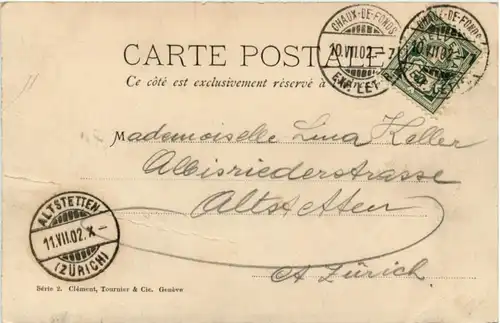 CARTE POSTALE
Ce côté est exclusivement réservé à
CHAUX-DE-FONDS
10.VII.02.-7
EXP. LET.
CHAUX-DE-FONDS
10.VII.02.-7
Mademoiselle Lina Keller
Albisriederstrasse
Altstetten
ALTSTETTEN
11.VII.02.X-
(ZÜRICH)
Zürich.
Série 2. Clément, Tournier & Cie. Genève